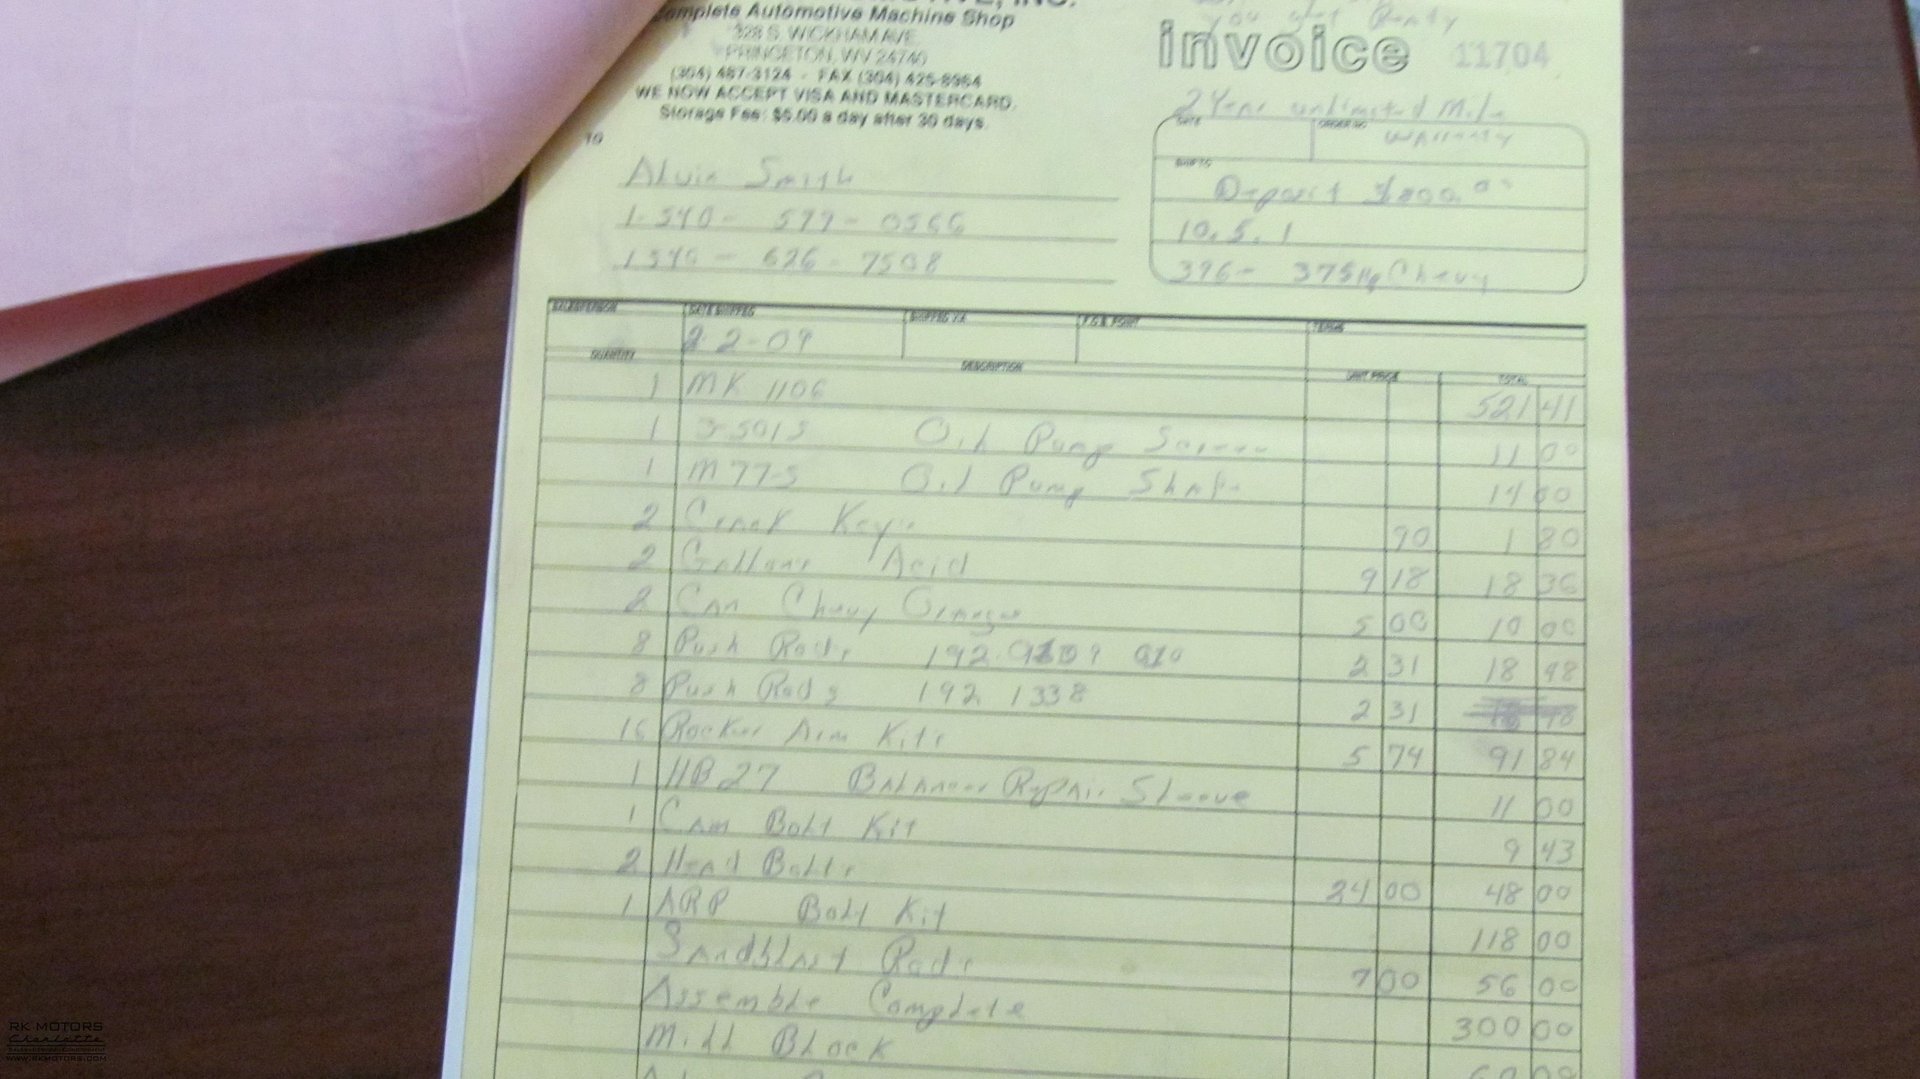 INC.
Complete Automotive Machine Shop
328 S. WICKHAM AVE
PRINCETON, WV 24740
(304) 487-3124 - FAX (304) 425-8954
WE NOW ACCEPT VISA AND MASTERCARD.
Storage Fee: $5.00 a day after 30 days.
You get Ready
invoice 11704
2 Year unlimited Mile
Warranty
DATE ORDER NO
TO
SHIP TO
Alvin Smith
1-540- 577-0566
1540- 626-7508
Deposit $800.00
10.5.1
396- 375Hp Chevy
SALESPERSON DATE SHIPPED SHIPPED VIA F.O.B. POINT TERMS
2-2-09
QUANTITY DESCRIPTION UNIT PRICE TOTAL
1 MK 1106 521 41
1 Oil Pump Screen 11 00
1 M77-S Oil Pump Shaft 14 00
2 Crank Keys 90 1 80
2 Gallons Acid 9 18 18 36
2 Can Chevy Orange 5 00 10 00
8 Push Rods 2 31 18 48
8 Push Rods 192 1338 2 31
16 Rocker Arm Kits 5 74 91 84
1 HB27 Balancer Repair Sleeve 11 00
1 Cam Bolt Kit 9 43
2 Head Bolts 24 00 48 00
1 ARP Bolt Kit 118 00
Sandblast Rods 7 00 56 00
Assemble Complete 300 00
Mill Block
RK MOTORS
Charlotte
WWW.RKMOTORS.COM